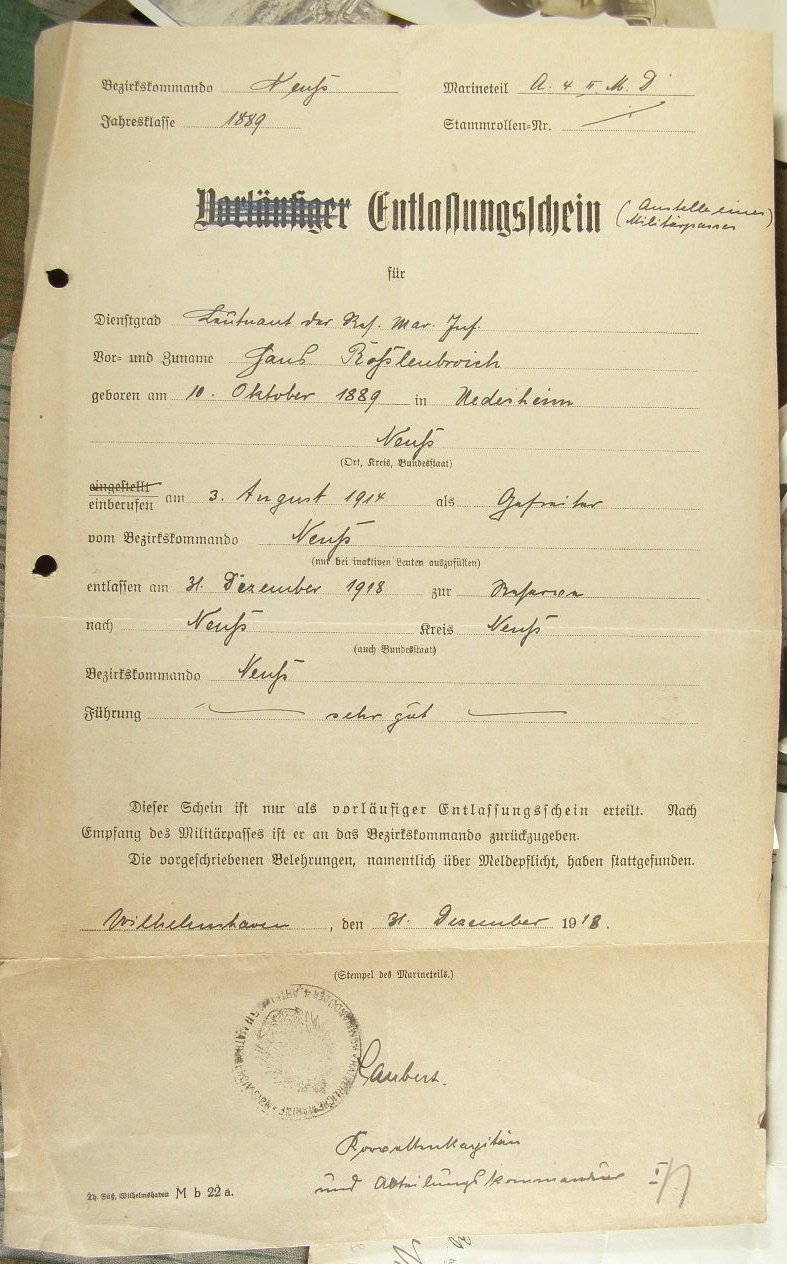 Bezirkskommando Neuß Marineteil A. 4 II. M. D
Jahresklasse 1889 Stammrollen-Nr.
Vorläufiger Entlassungsschein (Anstelle eines
Militärpasses)
für
Dienstgrad Leutnant der Res. Mar. Inf.
Vor- und Zuname Hans Roßlenbroich
geboren am 10. Oktober 1889 in Uedesheim
Neuß
(Ort, Kreis, Bundesstaat)
eingestellt
einberufen am 3. August 1914 als Gefreiter
vom Bezirkskommando Neuß
(nur bei inaktiven Leuten auszufüllen)
entlassen am 31. Dezember 1918 zur Reserve
nach Neuß Kreis Neuß
(auch Bundesstaat)
Bezirkskommando Neuß
Führung sehr gut
Dieser Schein ist nur als vorläufiger Entlassungsschein erteilt. Nach
Empfang des Militärpasses ist er an das Bezirkskommando zurückzugeben.
Die vorgeschriebenen Belehrungen, namentlich über Meldepflicht, haben stattgefunden.
Wilhelmshaven, den 31. Dezember 1918.
(Stempel des Marineteils.)
KAISERLICHE MARINE
Laubert.
Korvettenkapitän
und Abteilungskommandeur
Th. Süß, Wilhelmshaven M b 22 a.